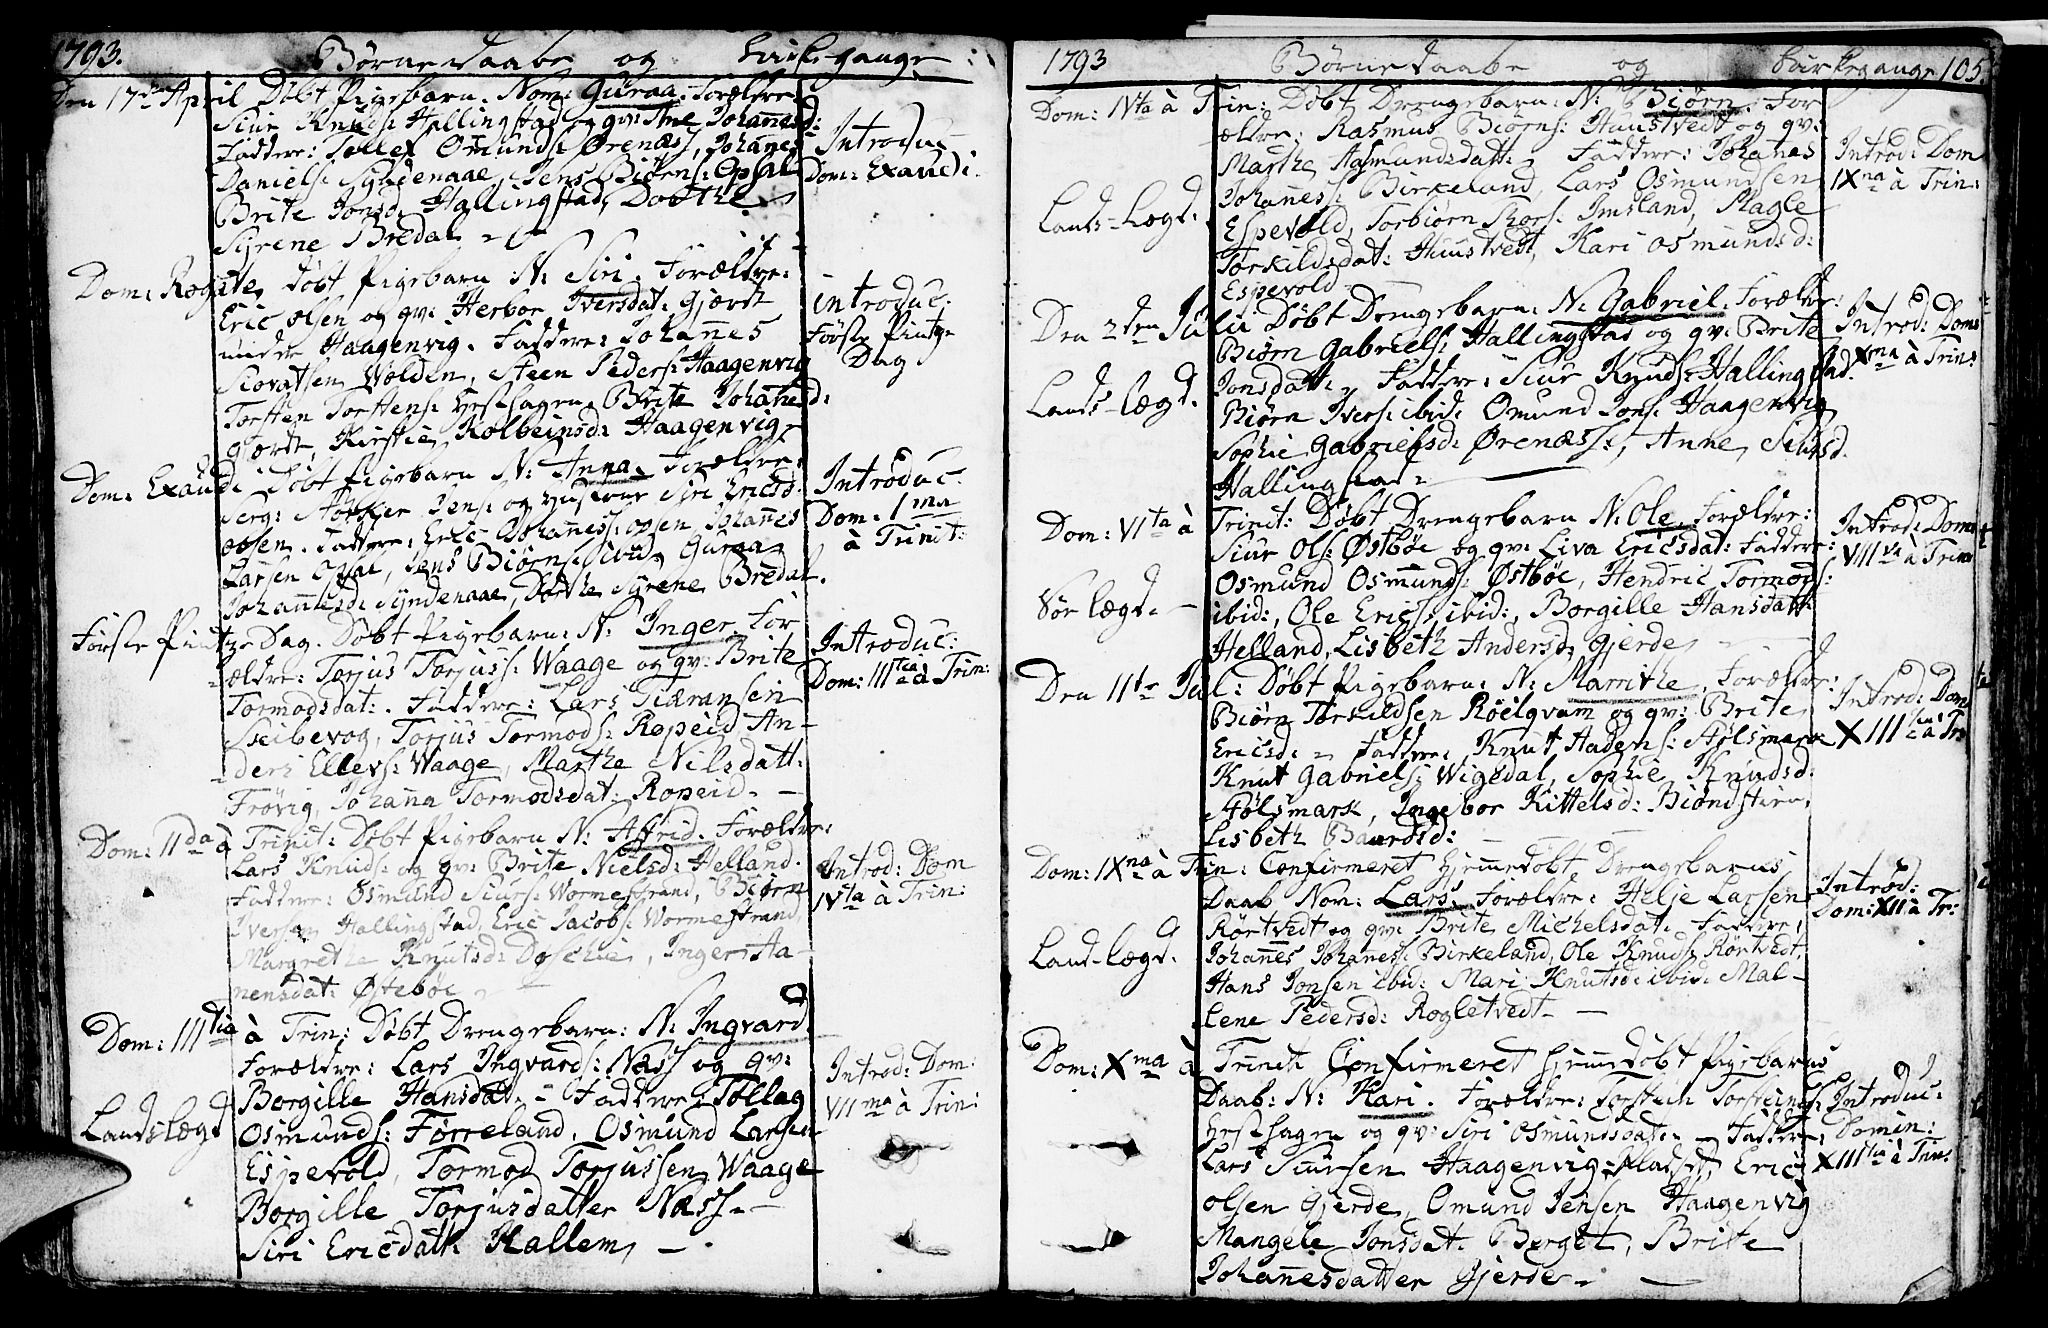 1793. Børnedaabe og Kirkegange
Den 17de April Døbt Pigebarn. Nom: Guraa. Forældre
Siur Knuds: Hallingstad og qv: Ane Johanesd:
Faddere: Tollef Omunds: Ørenæss, Johanes
Daniels: Syndenaae, Jens Biørns: Opsal
Brite Jonsd: Hallingstad, Dorthe
Syrene Bredal
Introduc
Dom: Exaudi.
Dom: Rogate, Døbt Pigebarn N: Siri. Forældre:
Eric Olsen og qv: Herbor Iversdat: Gjærde
under Haagenvig. Faddere: Johanes
Siovatsen Wolden, Steen Peders: Haagenvig
Torsten Torstens: Hesthagen, Brite Johanesd:
Gjærde, Kirstie Kolbeinsd: Haagenvig
introduc:
Første Pintze
Dag
Dom: Exaudi Døbt Pigebarn N: Anna. Forældre:
Serg: Størker Jens: og Hustrue Siri Ericsd:
Opsen. Faddere: Eric Johaness: Opsen, Johanes
Larsen Opsal, Jens Biørns: ibid, Guraa
Johannesd: Syndenaae, Dorthe Syrene Bredal.
Introduc:
Dom: 1ma
à Trinit:
Første Pintze Dag. Døbt Pigebarn: N: Inger. For
ældre: Torjus Torjuss: Waage og qv: Brite
Tormodsdat: Faddere: Lars Tiæransen
Skeibevog, Torjus Tormods: Ropeid An-
ders Ellevs: Waage, Marthe Nilsdatt:
Frøvig, Johana Tormodsdat: Ropeid. -
Introduc:
Dom: IIItia à Trin:
Dom: IIda à Trinit: Døbt Pigebarn N: Astrid. Forældre:
Lars Knuds: og qv: Brite Nielsd: Helland.
Faddere: Osmund Siurs: Wormestrand, Biørn
Iversen Hallingstad, Eric Jacobs: Wormestrand
Margrethe Knutsd: Doschie, Inger Aa-
nensdat: Østebøe
Introd: Dom
IVta à Trin:
Dom: IIItia à Trin: Døbt Drengebarn: N: Ingvard.
Forældre: Lars Ingvards: Næss og qv:
Borgille Hansdat. - Faddere: Tollag
Osmunds: Førreland, Osmund Larsen
Espevold, Tormod Torjussen Waage
Borgille Torjusdatter Næss. -
Siri Ericdatt: Hallem, -
Landslægd
Introd: Dom:
VIIma à Trin:
1793 Børnedaabe og Kirkegange 105
Dom: IVta à Trin: Døbt Drengebarn: N: Biørn. For
ældre: Rasmus Biørns: Huustvedt og qv:
Marthe Aasmundsdatt: Faddere: Johanes
Johaness: Birkeland, Lars Osmundsen
Espevold, Torbiørn Thors: Imsland, Magle
Torkildsdat: Huustvedt, Kari Osmundsd:
Espevold
Lands-Lægd.
Introd: Dom
IXna à Trin:
Den 2den Julii Døbt Drengebarn: N: Gabriel. Forældre:
Biørn Gabriels: Hallingstad og qv: Brite
Jonsdatt: Faddere: Siur Knuds: Hallingstad.
Biørn Ivers: ibid: Omund Jons: Haagenvig
Sophie Gabrielsd: Ørenæss:, Anne Siursd.
Hallingstad
Lands-lægd.
Introd: Dom:
Xma à Trin:
Dom: VIta à Trinit: Døbt Drengebarn N: Ole. Forældre:
Siur Ols: Østbøe og qv: Liva Ericsdat: Faddere:
Osmund Osmunds: Østbøe, Hendric Tormods:
ibid:, Ole Erics: ibid:, Borgille Hansdatt:
Helland, Lisbeth Andersd: Gjerde
Sør lægd. -
Introd: Dom:
VIIIva à Trin
Den 11te Jul: Døbt Pigebarn: N: Marrithe, Forældre:
Biørn Torkildsen Røelqvam og qv: Brite
Ericsd: Faddere: Knut Hadens: Støls mark
Knut Gabriels: Wigedal, Sophie Knudsd:
Stølsmark, Ingebor Kittelsd: Biøndstien,
Lisbeth Baardsd:
Introd: Dom
XIIItia à Tr:
Dom: IXna à Trin: Confirmeret Hjemmedøbt Drengebarns
Daab Nom: Lars. Forældre: Helje Larsen
Rørtvedt og qv: Brite Michelsdat. Faddere:
Johannes Johanes: Birkeland, Ole Knuds: Rørtvedt,
Hans Jonsen ibid: Mari Knutsd: ibid: Mal-
lene Pedersd: Rogletvedt -
Land-lægd.
Introd:
Dom: XII à Tr:
Dom: Xma à Trinit: Confirmeret Hjemmedøbt Pigebarns
Daab: N: Kari. Forældre: Torstein Torsteins:
Hesthagen og qv: Siri Osmundsdat: - Faddere:
Lars Siursen Haagenvig-Pladset, Eric
Olsen Gjerde, Omund Jensen Haagenvig
Mangele Jonsdat: Berget, Brite
Johannesdatter Gjerde. -
Introduc:
Domin:
XIIItia à Trin: